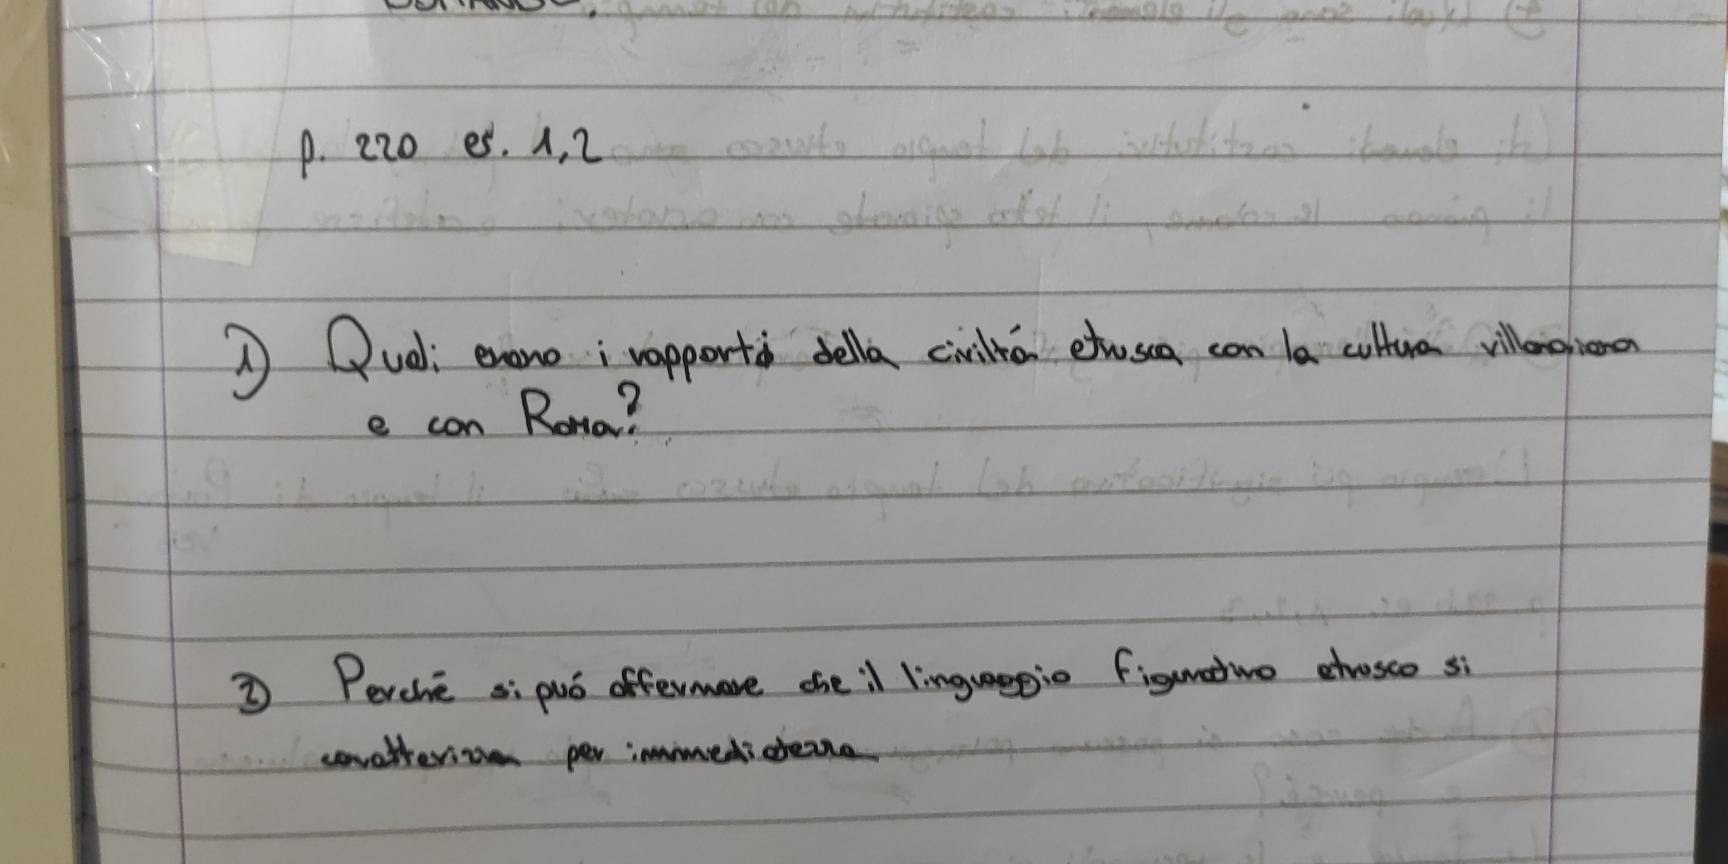 p. 220 es. 1,2
1) Quali erano i rapporti della civiltá etrusca con la cultura villanoviana
e con Roma?
2) Perché si puó affermare che il linguaggio figurativo etrusco si
caratterizza per immediatezza